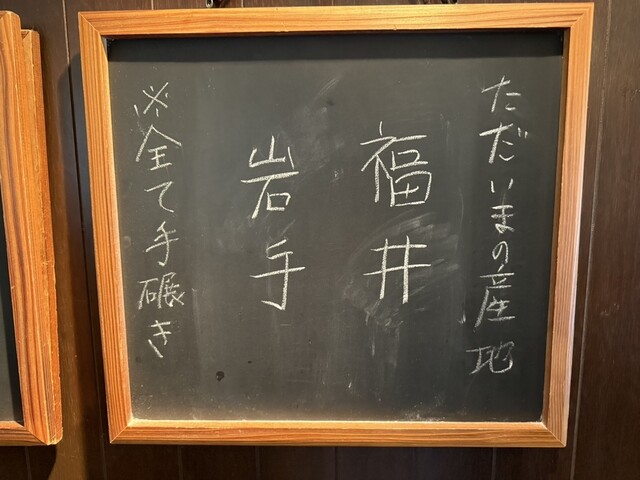 ただいまの産地
福井
岩手
※全て手碾き